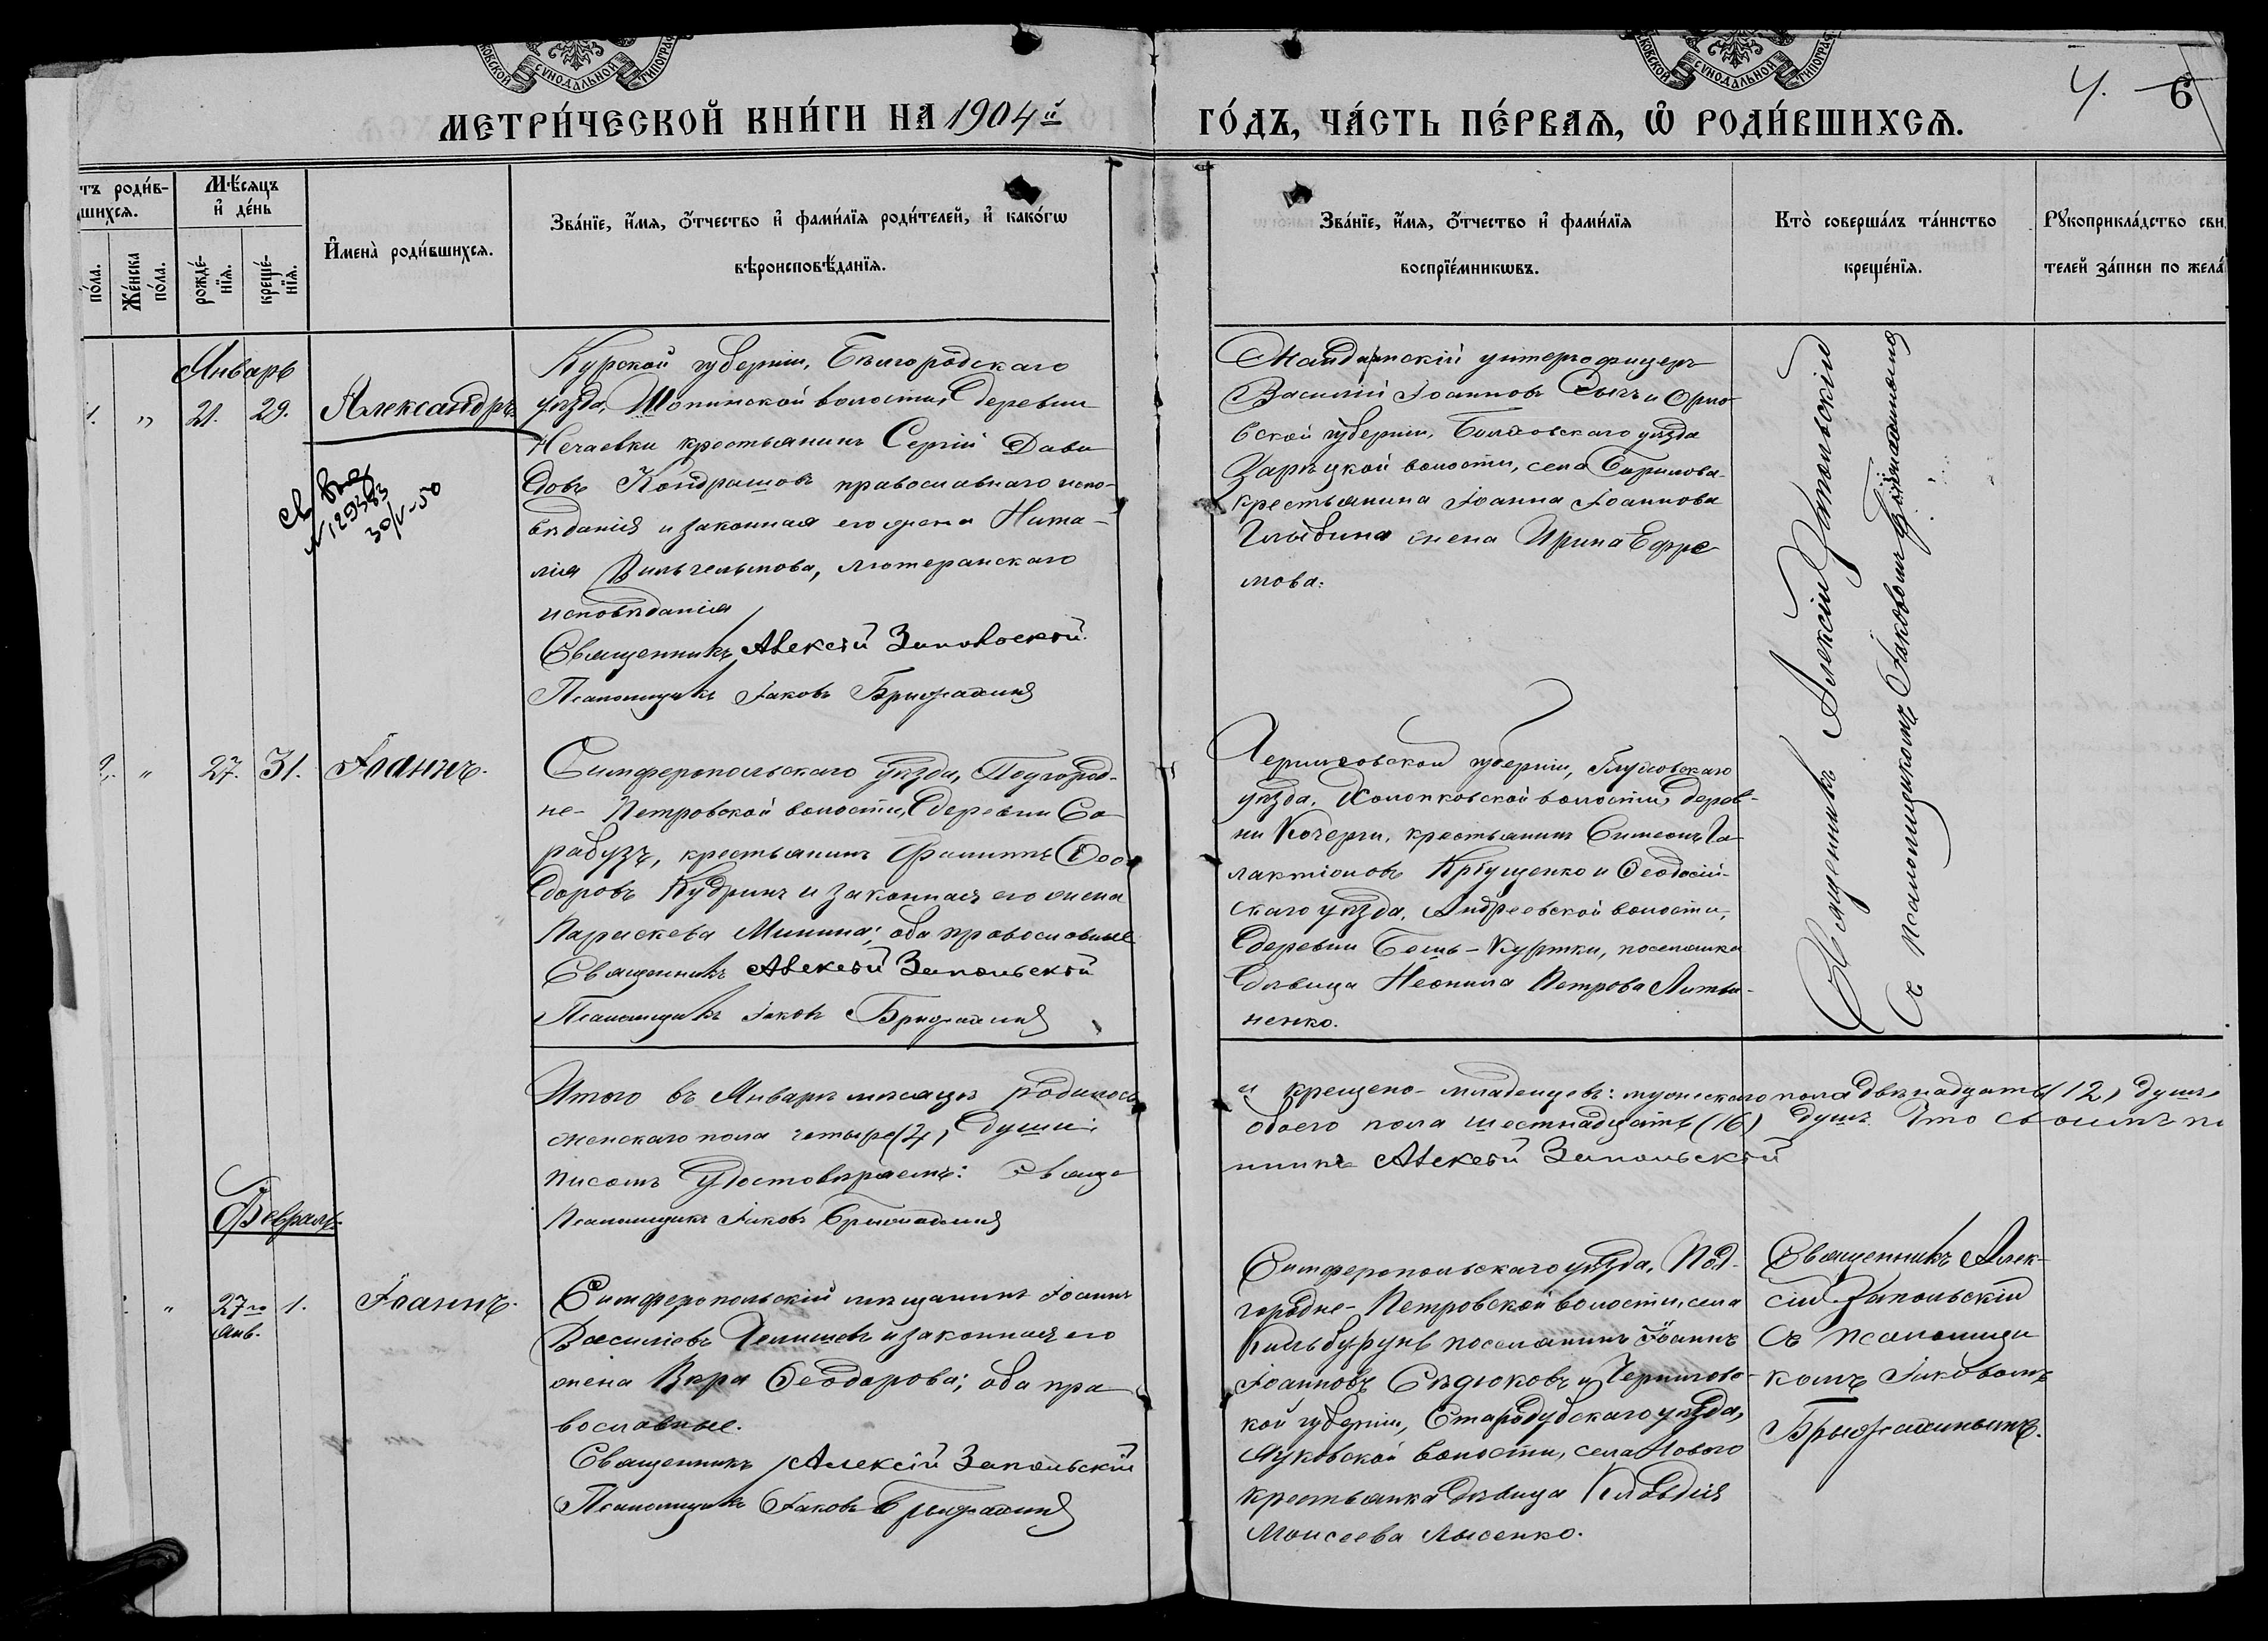 МЕТРИ́ЧЕСКОЙ КНИ́ГИ НА 1904й ГО́ДЪ, ЧА́СТЬ ПЕ́РВАЯ, Ѡ҆ РОДИ́ВШИХСЯ.
4. 6
КОВСКОЙ СѴНОДАЛЬНОЙ ТИПОГРАФ
КОВСКОЙ СѴНОДАЛЬНОЙ ТИПОГРАФ
тъ роди́в-
шихся.
по́ла.
Же́нска по́ла.
Мѣ́сяцъ и҆ де́нь
рожде́-нїя.
креще́-нїя.
И҆мена̀ роди́вшихся.
Зва́нїе, и҆́мя, ѻ҆́тчество и҆ фами́лїя роди́телей, и҆ како́гѡ
вѣроисповѣ́данїя.
Зва́нїе, и҆́мя, ѻ҆́тчество и҆ фами́лїя
воспрїе́мникѡвъ.
Кто̀ соверша́лъ та́инство
креще́нїя.
Рꙋкоприкла́дство сви
телей за́писи по жела́
Январь
1. " 21. 29. Александръ
30/V-50
Курской губерніи, Бѣлгородскаго
уѣзда, Шопинской волости, деревни
Нечаевки крестьянинъ Сергій Дави
довъ Кондрашовъ православнаго испо-
вѣданія и законная его жена Ната-
лія Вильгельмова, лютеранскаго
исповѣданія
Священникъ Алексій Запольскій
Псаломщикъ Іаковъ
унтерофицеръ
Василій Іоанновъ Сычъ и Орло
вской губерніи, Болховскаго уѣзда
Зарѣцкой волости, села
крестьянина Іоанна Іоаннова
жена Ирина Ефре
мова.
Священникъ Алексій Запольскій
Съ псаломщикомъ Іаковомъ
2. " 27. 31. Іоаннъ.
Симферопольскаго уѣзда, Подгород-
не-Петровской волости, деревни Са
рабузъ, крестьянинъ Филиппъ Ѳео
доровъ Кудринъ и законная его жена
Параскева Минина; оба православные
Священникъ Алексій Запольскій
Псаломщикъ Іаковъ
Черниговской губерніи, Глуховскаго
уѣзда, Холопковской волости, дерев-
ни Кочерги, крестьянинъ Симеонъ Га
лактіоновъ и Ѳеодосій-
скаго уѣзда, Андреевской волости,
деревни Бешъ-Куртки, поселянка
дѣвица Неонила Петрова Литви-
ненко.
Итого въ Январѣ мѣсяцѣ родилось и крещено младенцевъ: мужескаго пола двѣнадцать (12) душъ
женскаго пола четыре (4) души обоего пола шестнадцать (16) душъ. Что своимъ по
писомъ удостовѣряемъ: Свяще нникъ Алексій Запольскій
Псаломщикъ Іаковъ
Февраль
" 27го Янв. 1. Іоаннъ.
Симферопольскій мѣщанинъ Іоаннъ
Василіевъ и законная его
жена Вѣра Ѳеодорова; оба пра
вославные.
Священникъ Алексій Запольскій
Псаломщикъ Іаковъ
Симферопольскаго уѣзда, Под-
городне-Петровской волости, села
Кильбурунъ поселянинъ Іоаннъ
Іоанновъ Сѣдюковъ и Черниговс
кой губерніи, Стародубскаго уѣзда,
волости, села Новаго
крестьянка дѣвица Клавдія
Моисеева Лысенко.
Священникъ Алек-
сій Запольскій
съ псаломщи
комъ Іаковомъ